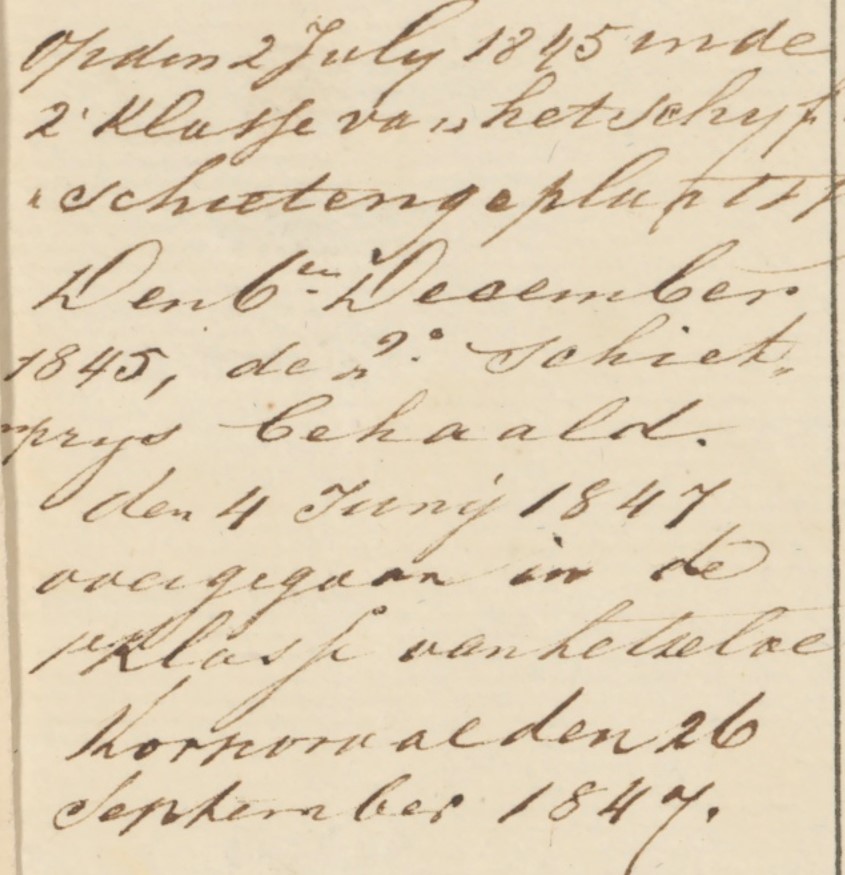 Op den 2 July 1845 in de
2e Klasse van het schyf
schieten geplaatst
Den 6en December
1845, de 2e Schiet
prys behaald.
den 4 Junij 1847
overgegaan in de
1e Klasse van hetzelve
Korporaal den 26
September 1847.